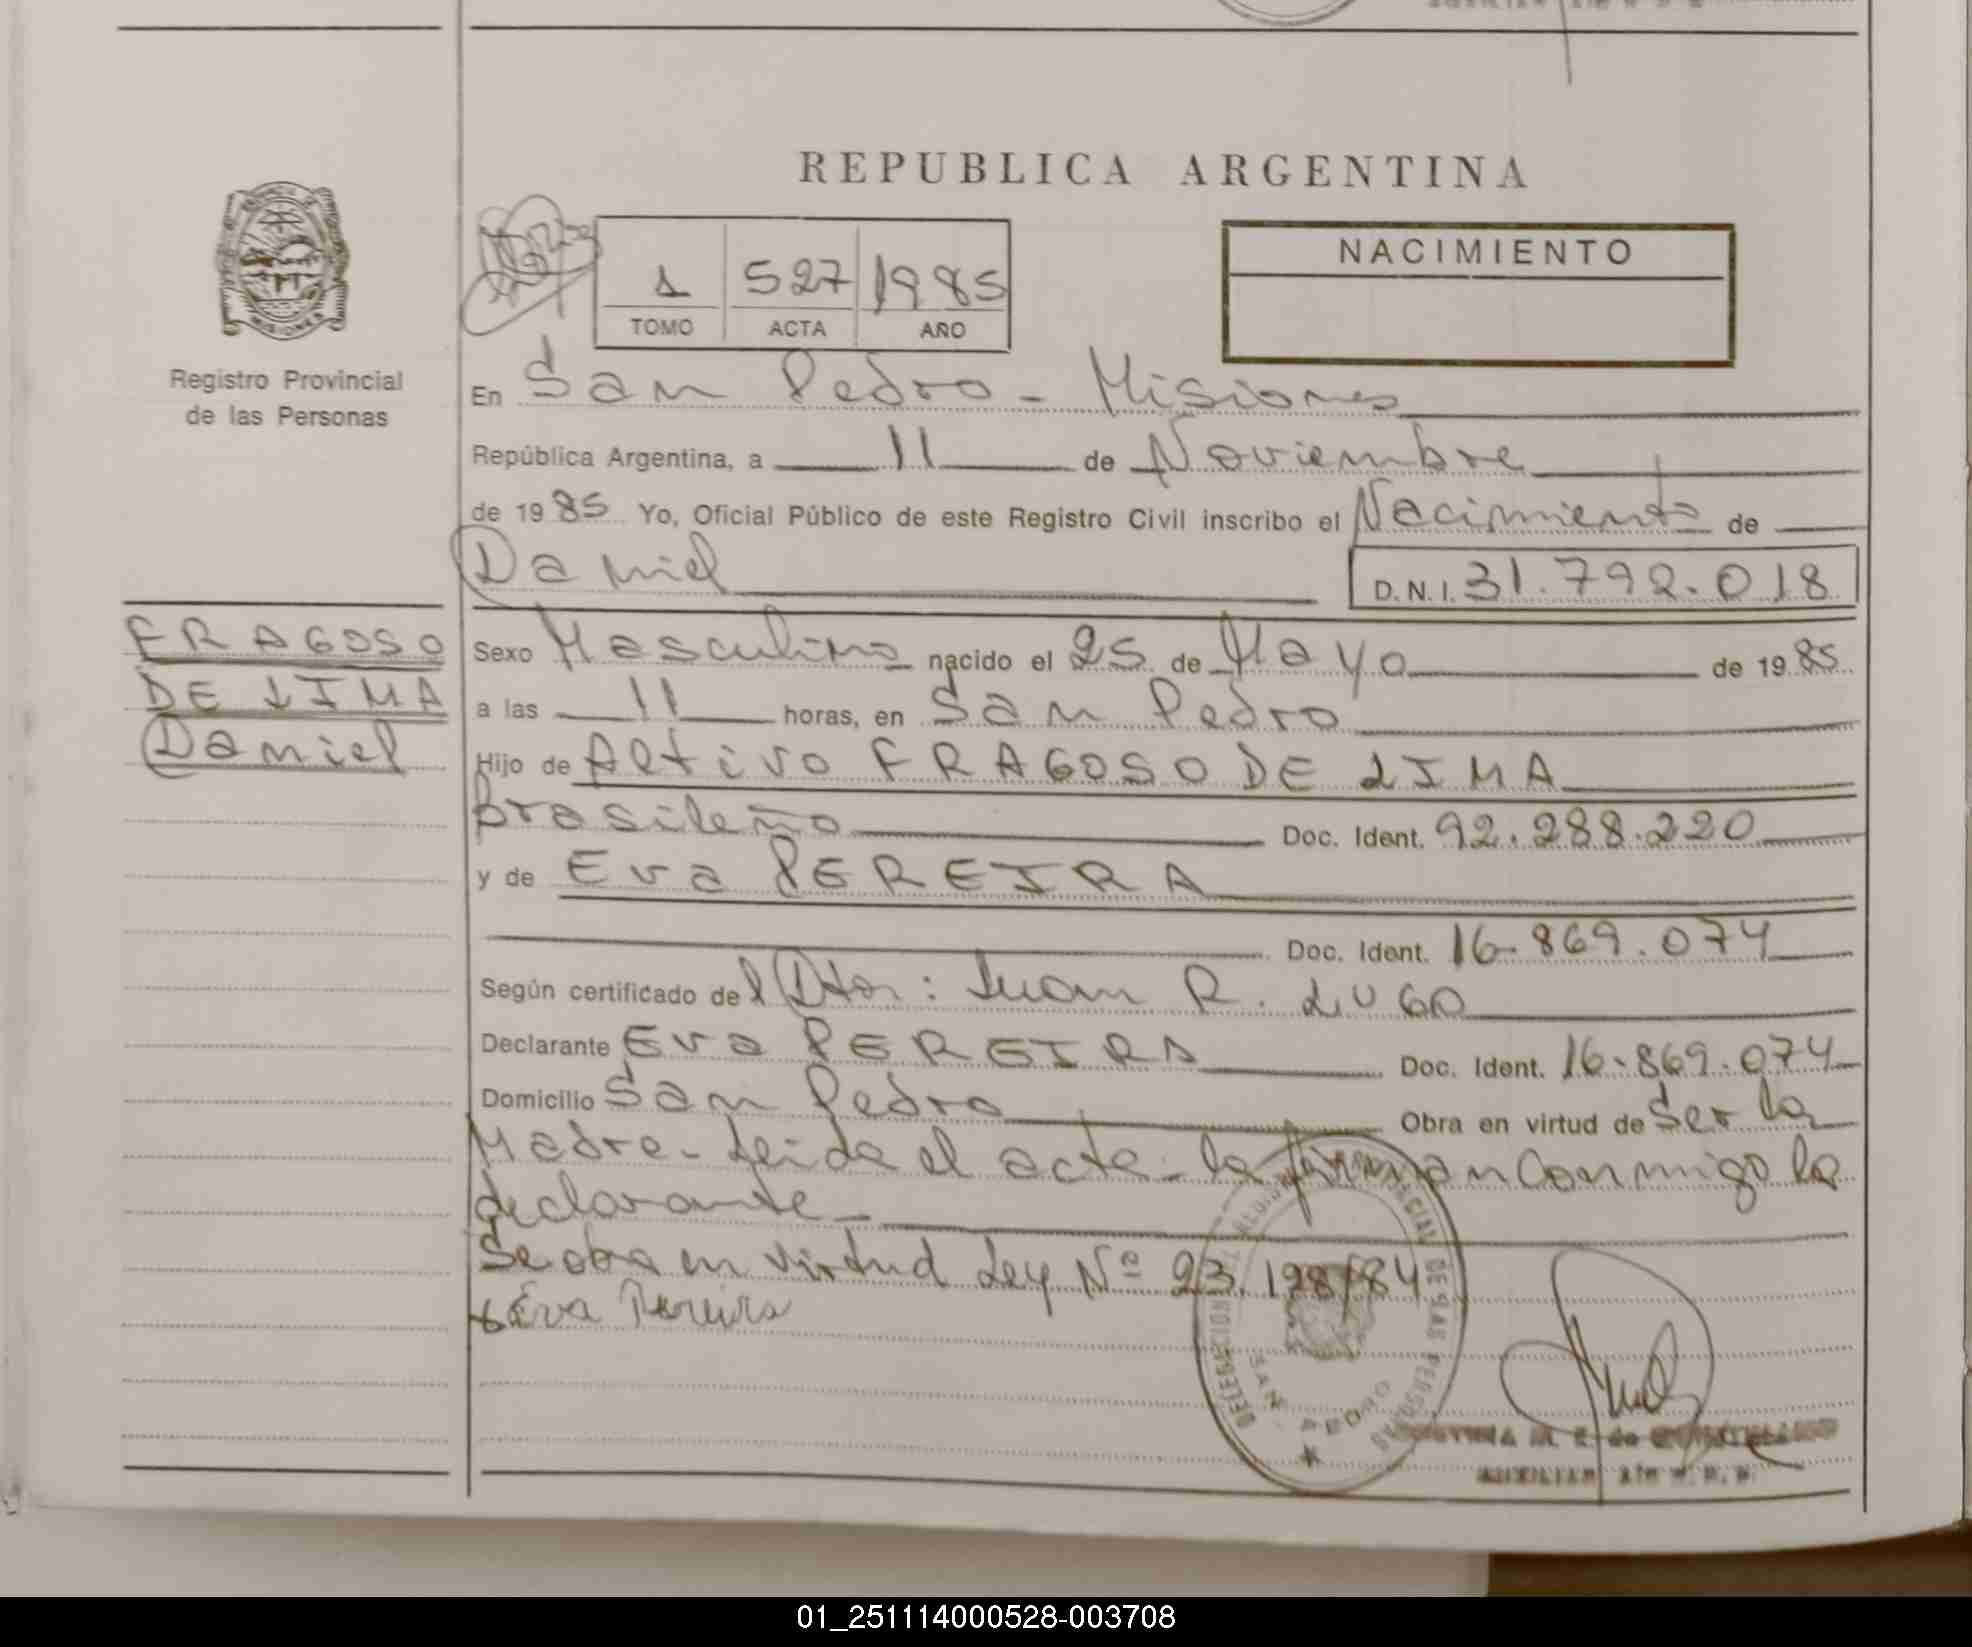 REPUBLICA ARGENTINA
MISIONES
Registro Provincial
de las Personas
1 527 1985
TOMO ACTA AÑO
NACIMIENTO
En San Pedro - Misiones
República Argentina, a 11 de Noviembre
de 1985 Yo, Oficial Público de este Registro Civil inscribo el Nacimiento de
Daniel D.N.I. 31.792.018
FRAGOSO
DE LIMA
Daniel
Sexo Masculino nacido el 25 de Mayo de 1985
a las 11 horas, en San Pedro
Hijo de Altivo FRAGOSO DE LIMA
brasileño Doc. Ident. 92.288.220
y de Eva PEREIRA
Doc. Ident. 16.869.074
Según certificado del Dtor: Juan R. LUGO
Declarante Eva PEREIRA Doc. Ident. 16.869.074
Domicilio San Pedro Obra en virtud de Ser la
Madre - Leida el acta - la firman Conmigo la
declarante -
Se obra en virtud Ley Nº 23.128/84
Eva Pereira
DELEGACION REGISTRO PROVINCIAL DE LAS PERSONAS
SAN PEDRO
M. E. de
AUXILIAR
01_251114000528-003708